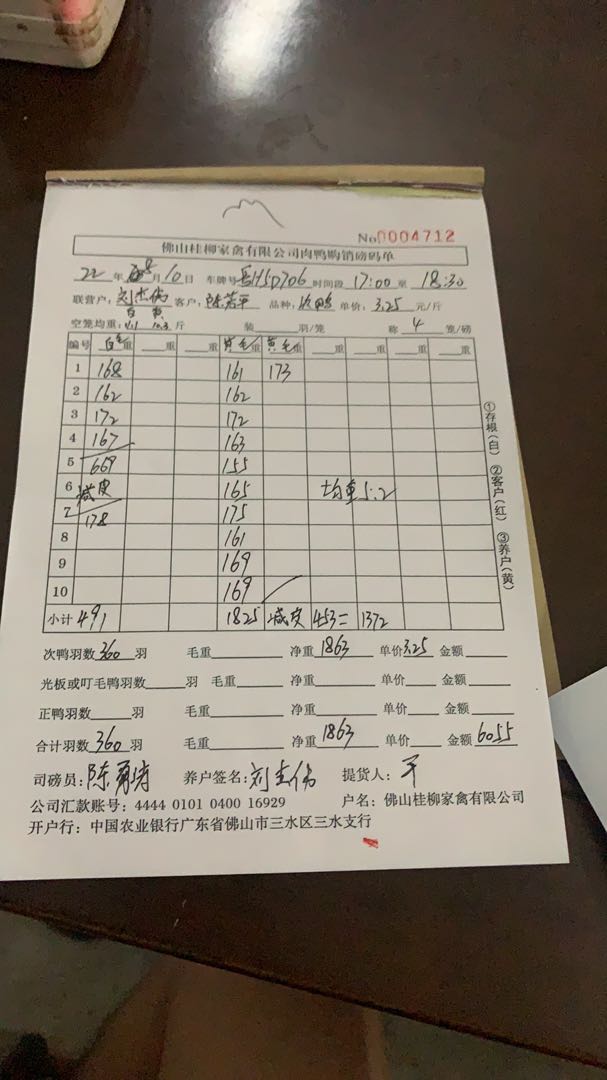 No.0004712
佛山桂柳家禽有限公司肉鸭购销磅码单
22年8月10日 车牌号 H5D706 时间段 17:00至18:30
联营户：刘杰伟 客户：陈若平 品种： 鸭 单价：3.25元/斤
白 黄
空笼均重： 10.3斤 装 羽/笼 称4笼/磅
编号 白毛重 重 重 黄毛重 黄毛重 重 重 重 重
1 168 161 173
2 162 162
3 172 172
4 167 163
5 669 155
6 减皮 165 均重5.2
7 178 175
8 161
9 169
10 169
小计 491 1825 减皮 453= 1372
次鸭羽数360羽 毛重 净重1863 单价3.25 金额
光板或叮毛鸭羽数 羽 毛重 净重 单价 金额
正鸭羽数 羽 毛重 净重 单价 金额
合计羽数360羽 毛重 净重1863 单价 金额6055
司磅员：陈 养户签名：刘杰伟 提货人：
公司汇款账号：4444 0101 0400 16929 户名：佛山桂柳家禽有限公司
开户行：中国农业银行广东省佛山市三水区三水支行
①存根(白) ②客户(红) ③养户(黄)